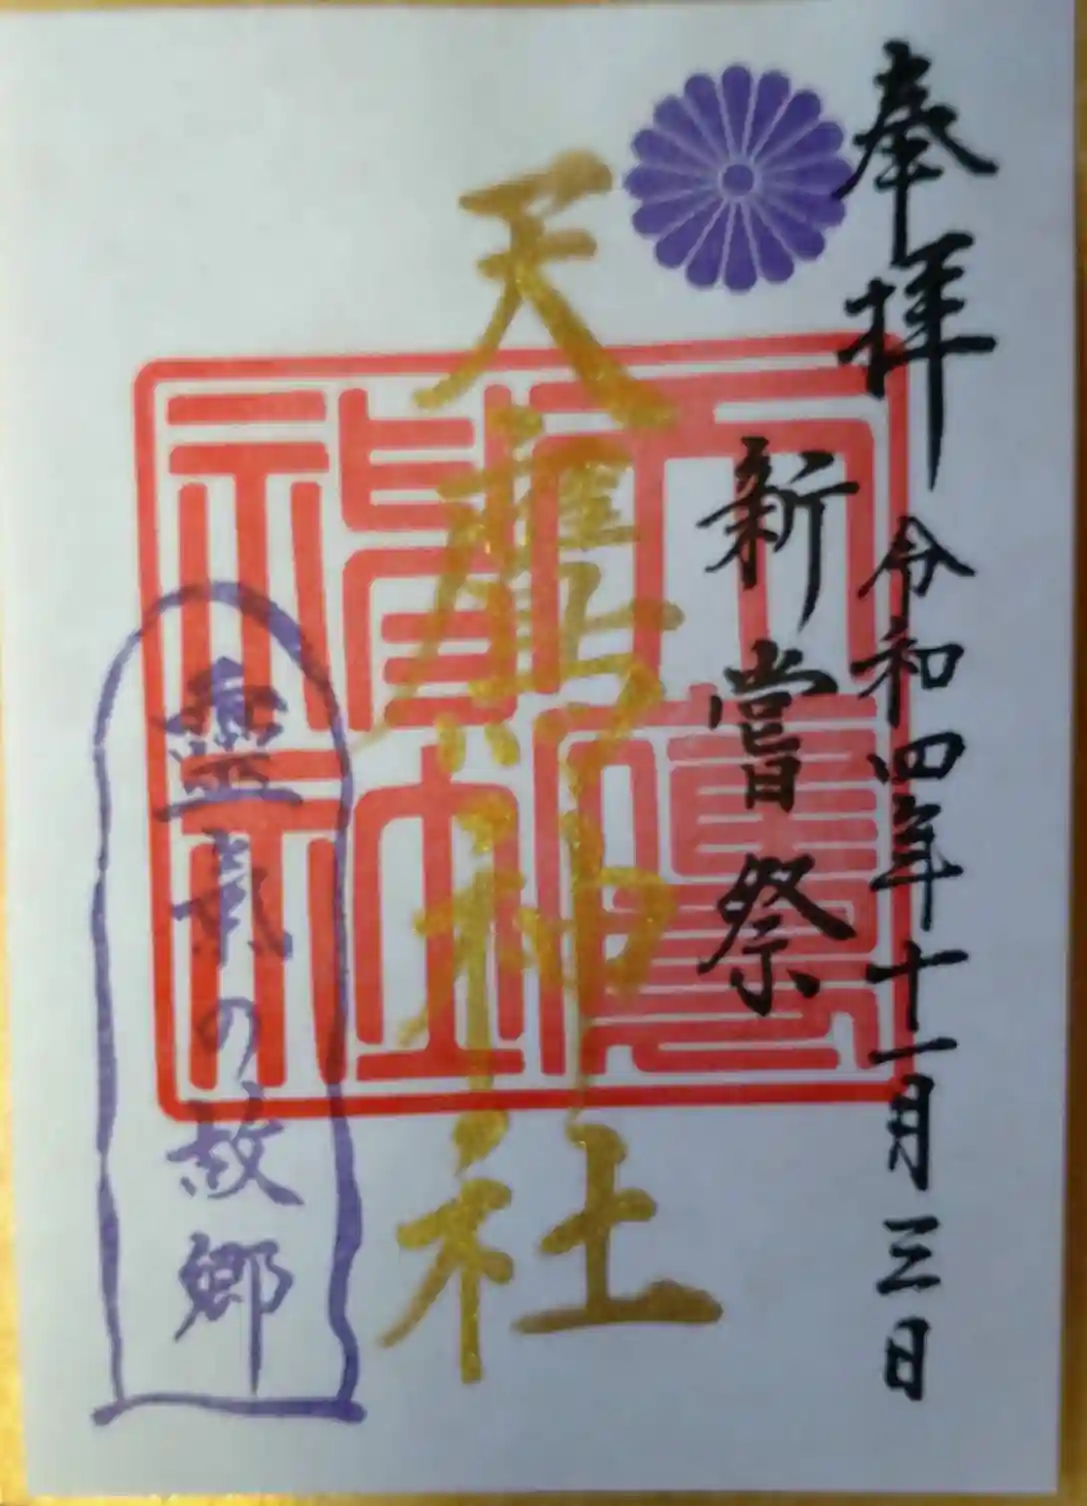 奉拝
令和四年十一月三日
新嘗祭
天鷹神社
の故郷